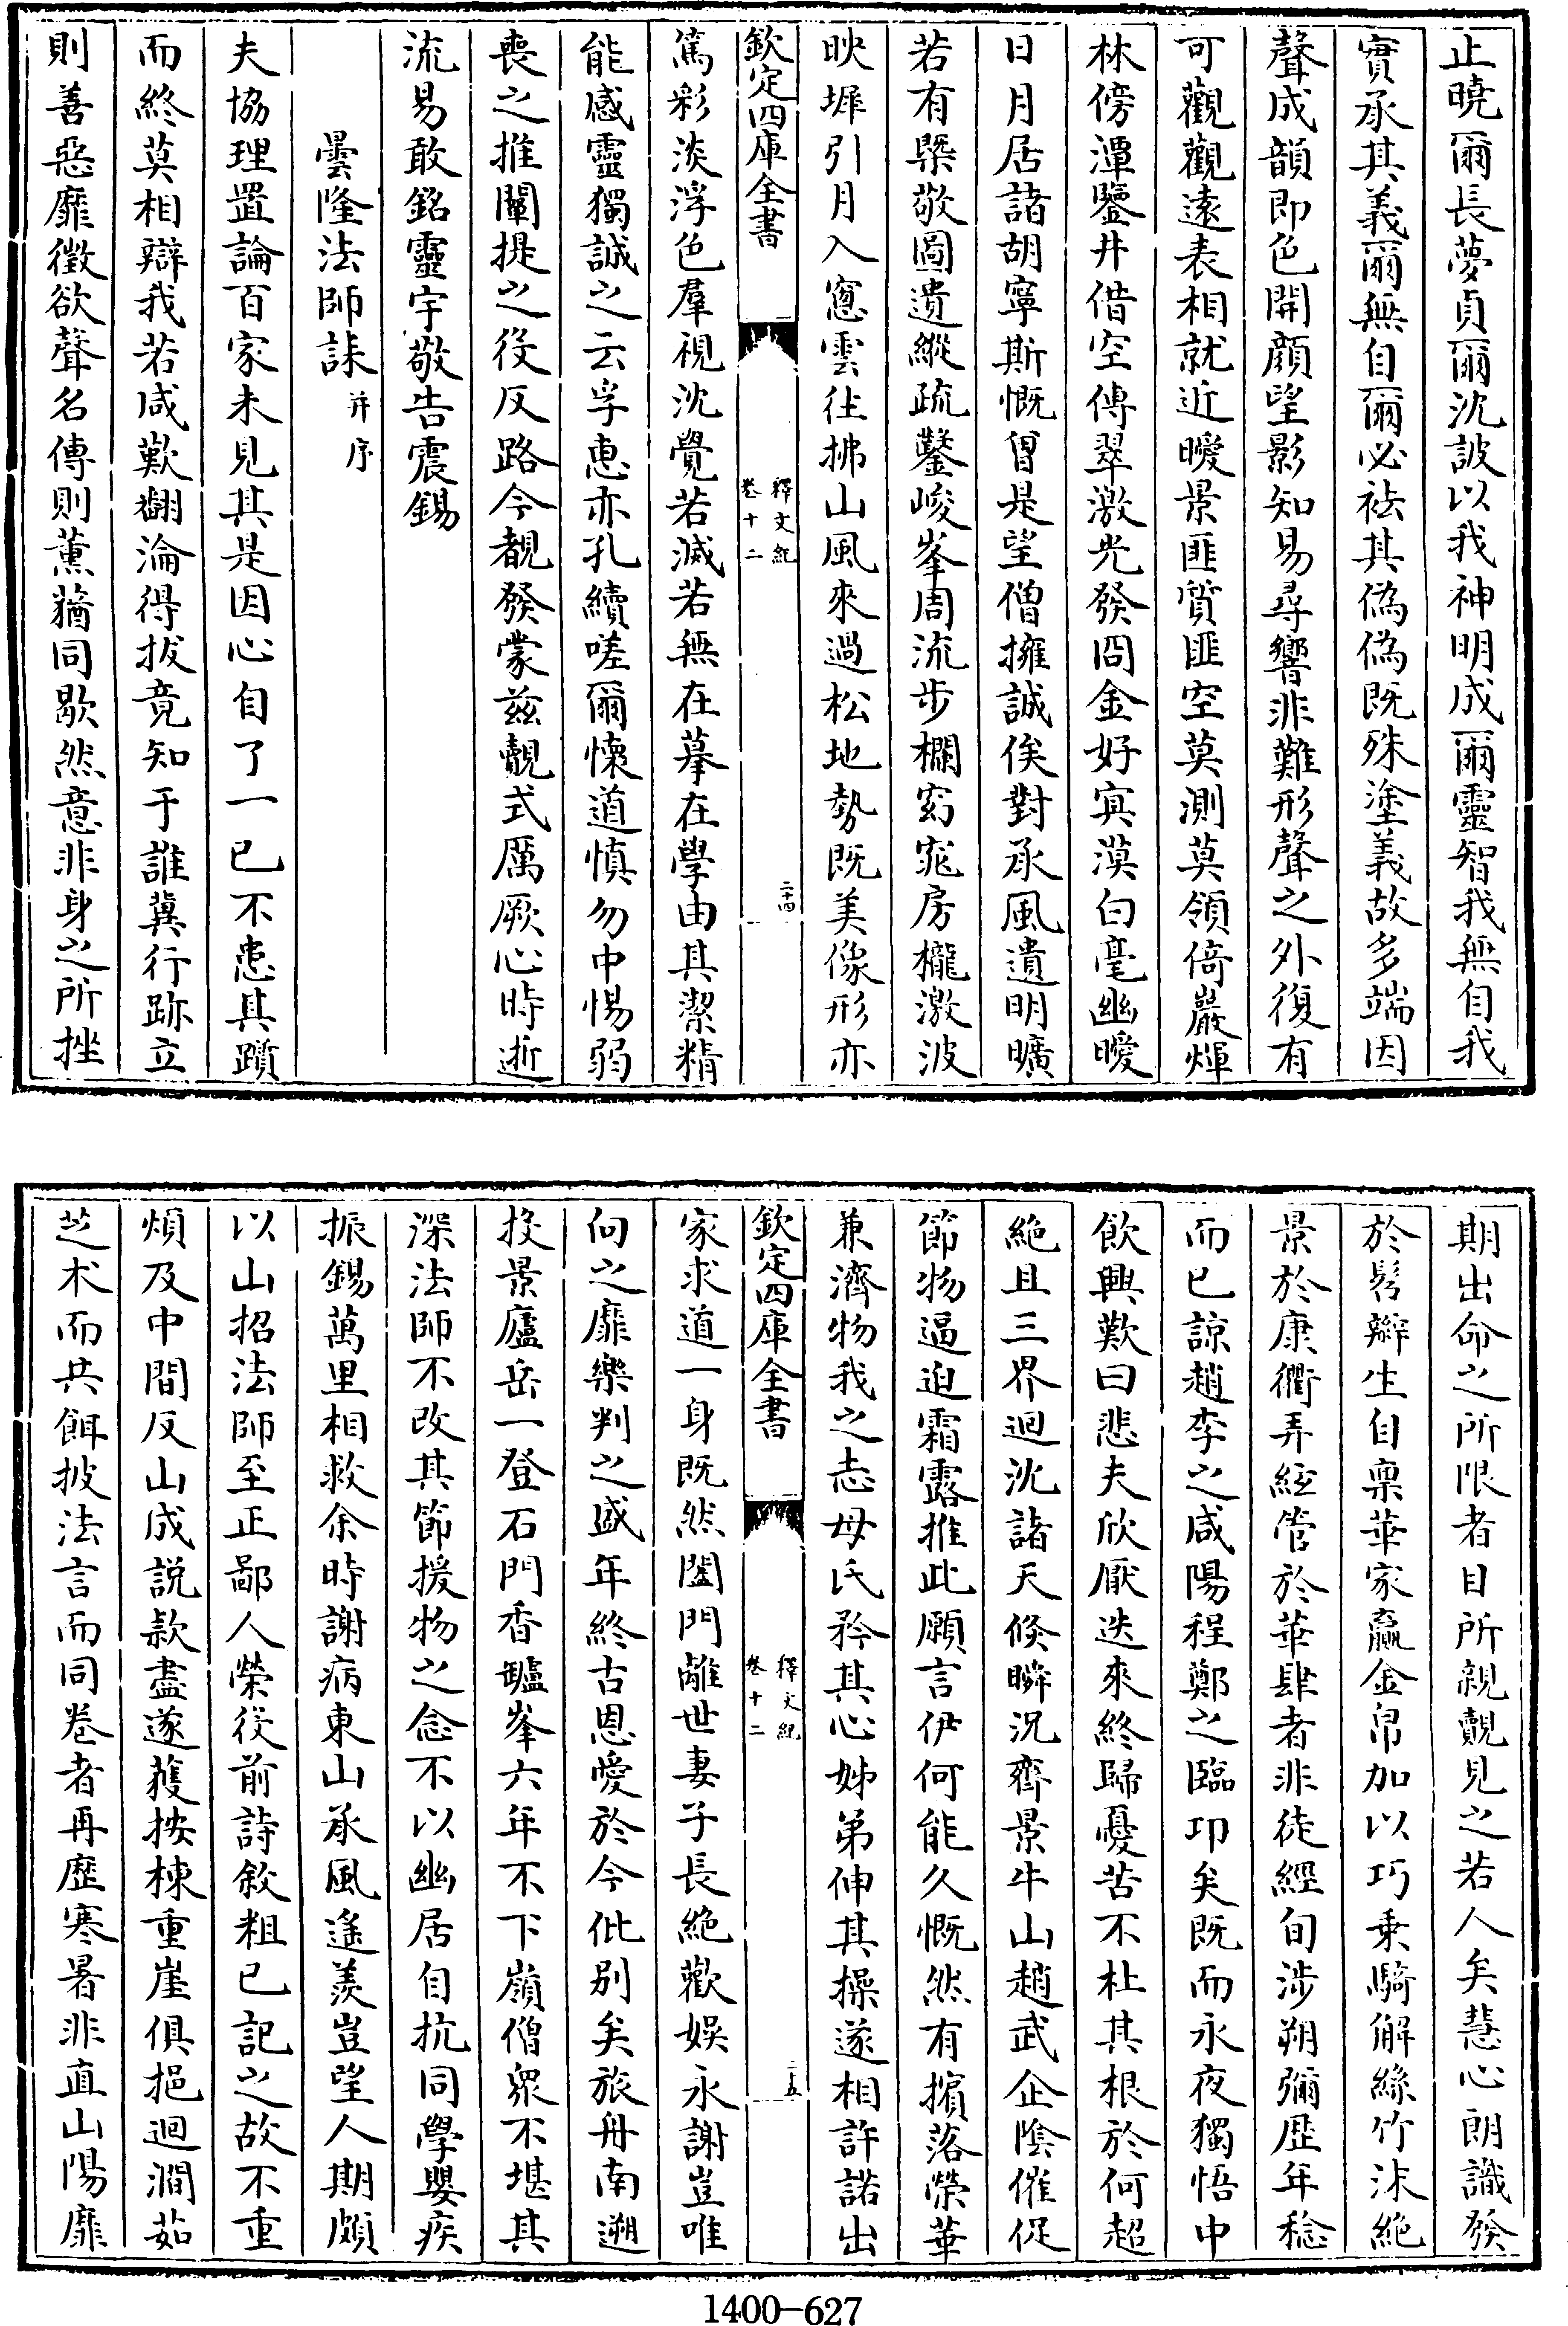 止曉爾長夢貞爾沈詖以我神明成爾靈智我無自我
實承其義爾無自爾必祛其偽偽既殊塗義故多端因
聲成韻即色開顔望影知易尋響非難形聲之外復有
可觀觀遠表相就近曖景匪質匪空莫測莫領倚巖煇
林傍潭鑒井借空傳翠激光發冏金好寘漠白毫幽曖
日月居諸胡寧斯慨曾是望僧擁誠俟對承風遺明曠
若有槩敬圖遺縱疏鑿峻峯周流步欄窈窕房櫳激波
映墀引月入窻雲往拂山風來過松地勢既美像形亦
欽定四庫全書
釋文紀
卷十二
二十四
篤彩淡浮色羣視沈覺若滅若無在摹在學由其潔精
能感靈獨誠之云孚惠亦孔續嗟爾懷道慎勿中惕弱
喪之推闡提之役反路今覩發蒙兹覿式厲厥心時逝
流易敢銘靈宇敬告震錫
曇隆法師誄并序
夫協理置論百家未見其是因心自了一已不患其躓
而終莫相辯我若咸歎翻淪得拔竟知于誰冀行跡立
則善惡靡徵欲聲名傳則薰蕕同歇然意非身之所挫
期出命之所限者目所親覿見之若人矣慧心朗識發
於髫辮生自稟華家贏金帛加以巧乗騎解絲竹沫絶
景於康衢弄絃管於華肆者非徒經旬涉朔彌歴年稔
而已諒趙李之咸陽程鄭之臨卭矣既而永夜獨悟中
飲興歎曰悲夫欣厭迭來終歸憂苦不杜其根於何超
絶且三界迴沈諸天倏瞬況齊景牛山趙武企陰催促
節物逼迫霜露推此願言伊何能久慨然有擯落榮華
兼濟物我之志母氏矜其心姊弟伸其操遂相許諾出
欽定四庫全書
釋文紀
卷十二
二十五
家求道一身既然闔門離世妻子長絶歡娛永謝豈唯
向之靡樂判之盛年終古恩愛於今仳别矣旅舟南遡
投景廬岳一登石門香罏峯六年不下嶺僧衆不堪其
深法師不改其節援物之念不以幽居自抗同學嬰疾
振錫萬里相救余時謝病東山承風遥羨豈望人期頗
以山招法師至止鄙人榮役前詩敘粗已記之故不重
煩及中間反山成説款盡遂獲按棟重崖俱挹迴澗茹
芝术而共餌披法言而同卷者再歴寒暑非直山陽靡
1400-627